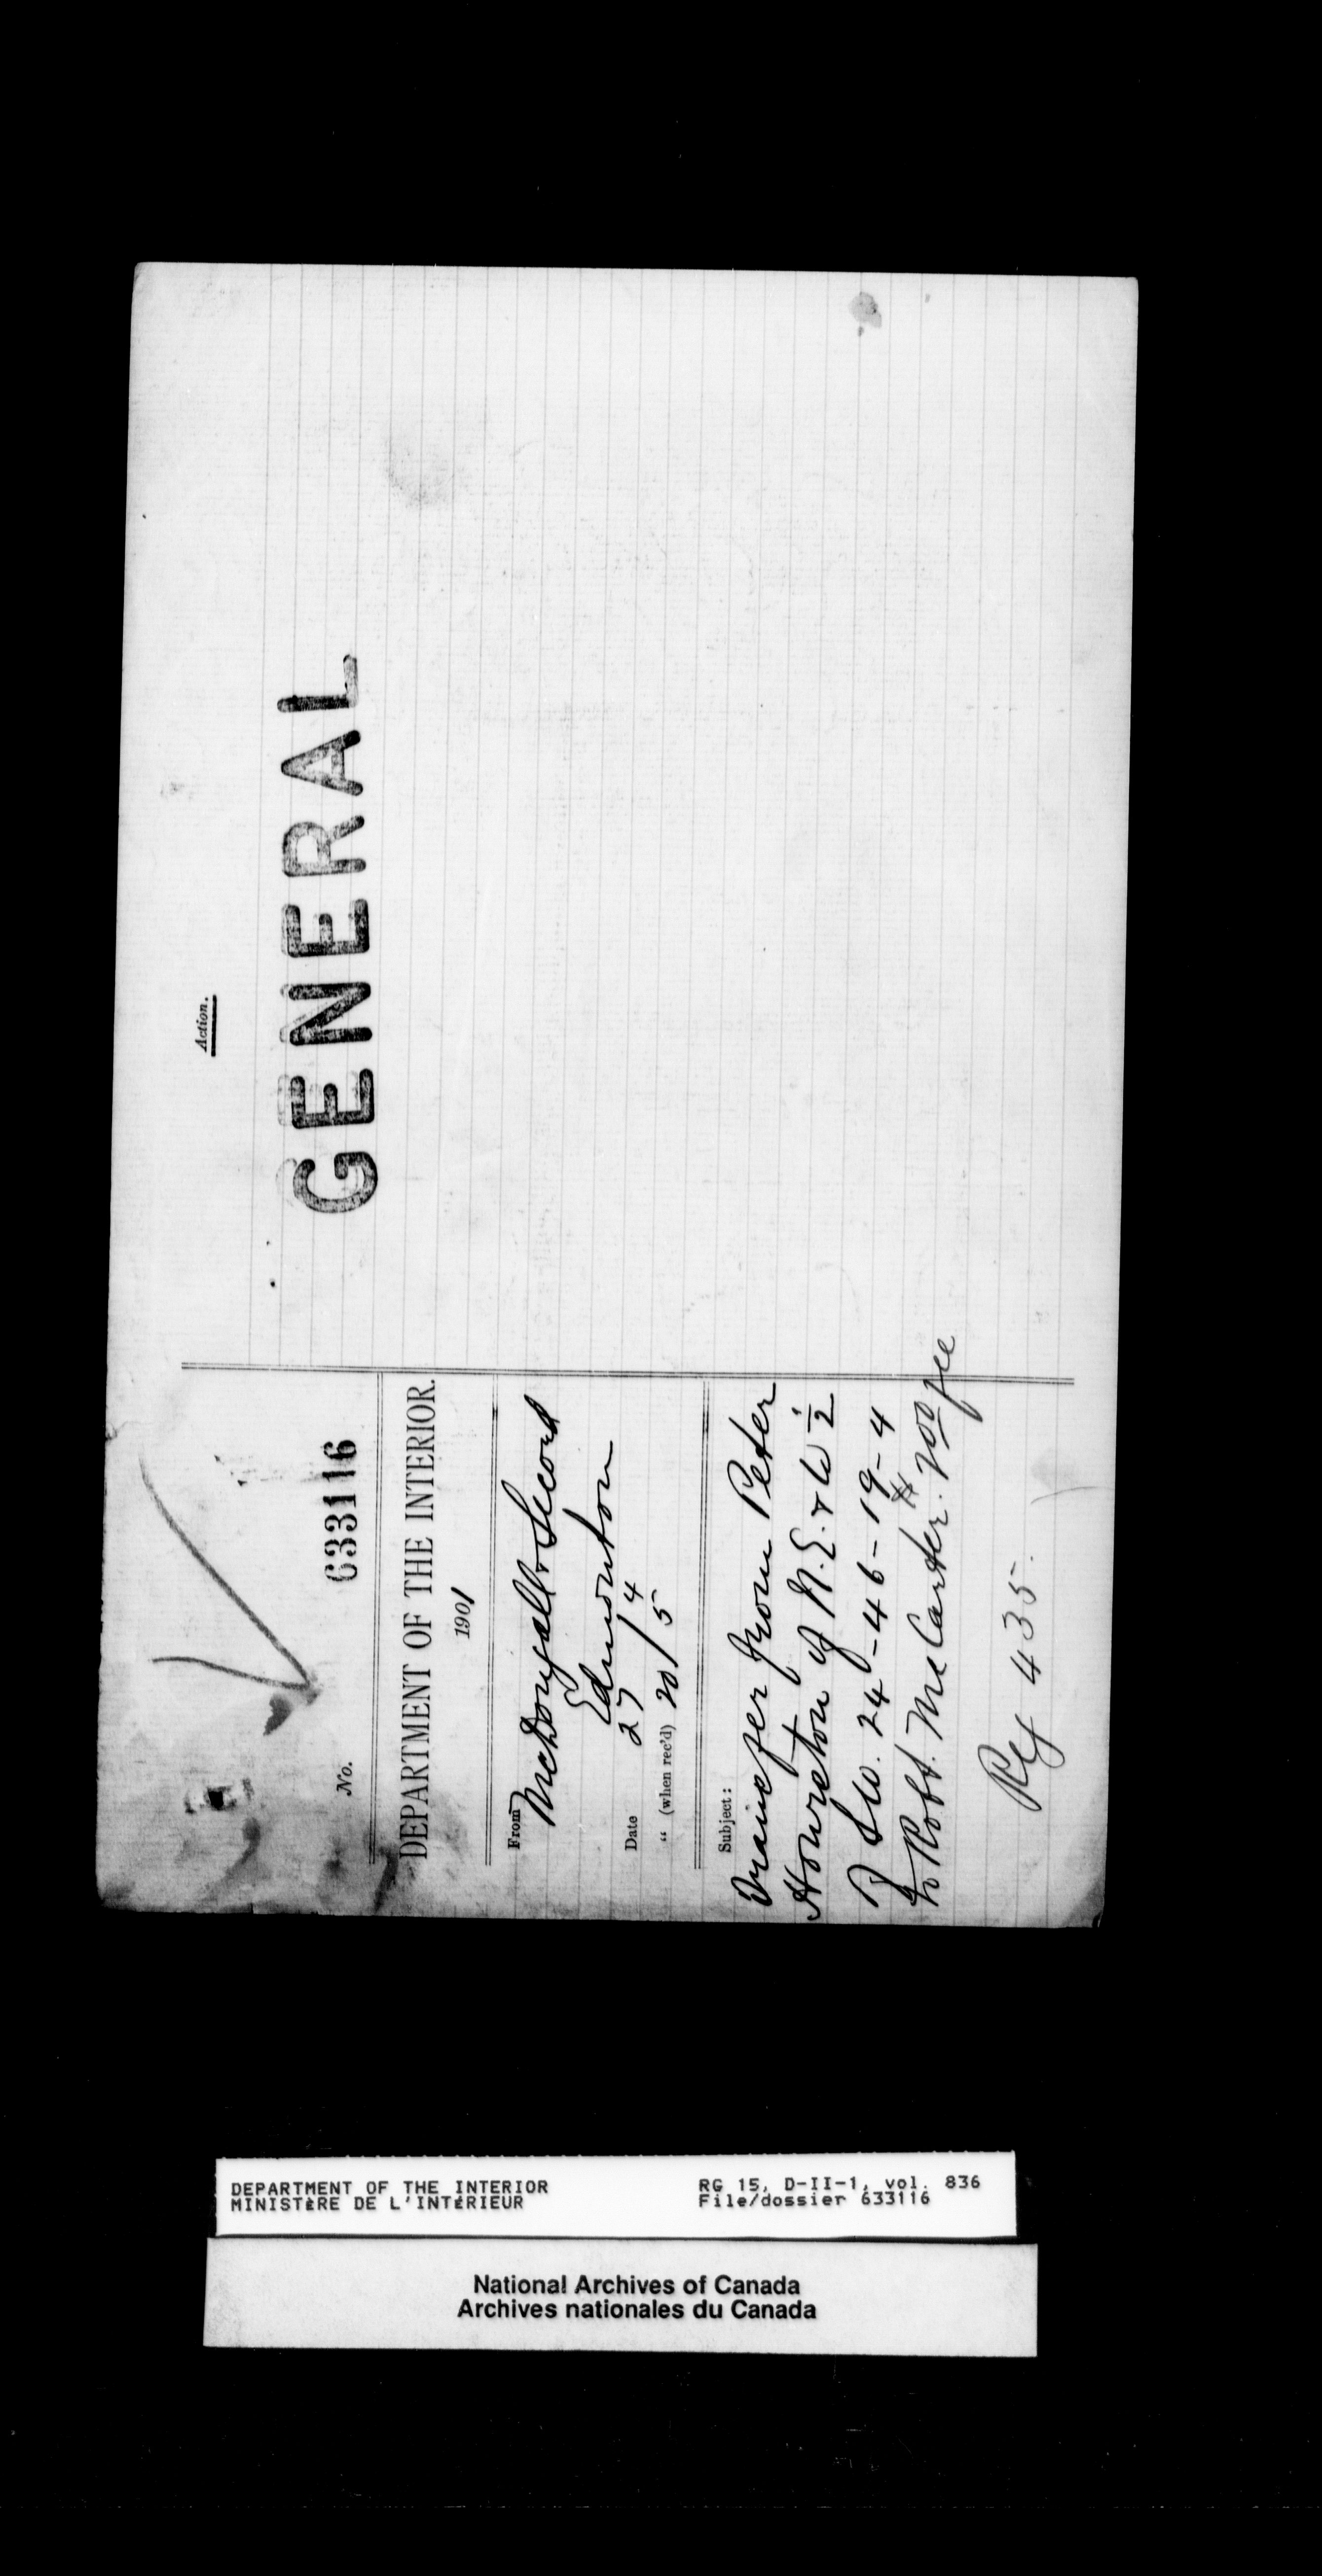 No. 633116
DEPARTMENT OF THE INTERIOR.
1901
From McDougall & Secord
Edmonton
Date 27/4
" (when rec'd) 20/5
Subject:
Transfer from Peter
Hourston of N.E. & W ½
of S.W. 24-46-19-4
to Robt. McCarter. $2.00 fee
Ref 435.
Action.
GENERAL
DEPARTMENT OF THE INTERIOR
MINISTÈRE DE L'INTÉRIEUR
RG 15, D-II-1, vol. 836
File/dossier 633116
National Archives of Canada
Archives nationales du Canada